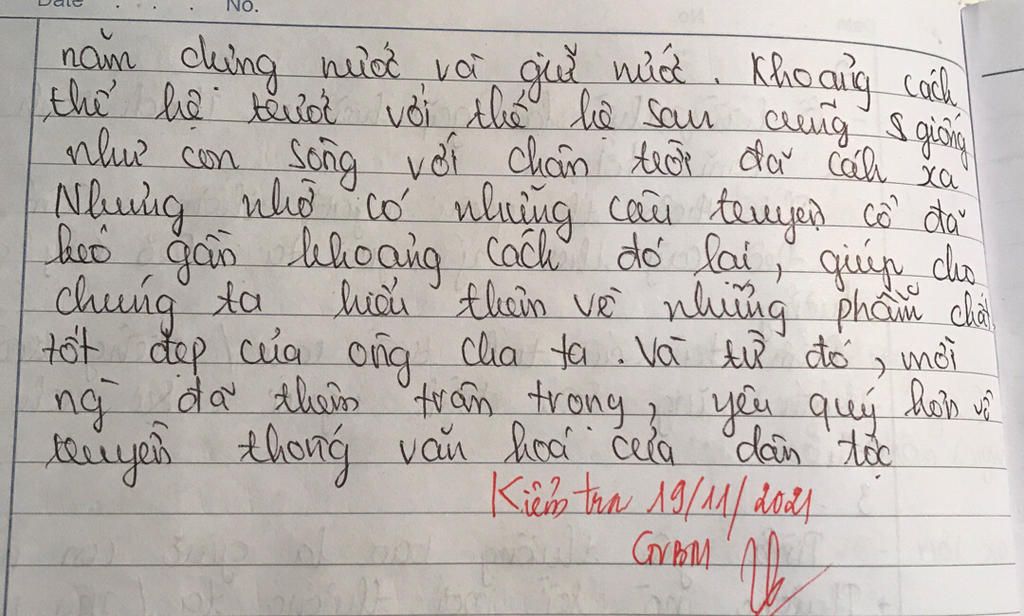 Date . . . . No.
năm dựng nước và giữ nước. Khoảng cách
thế hệ trước với thế hệ sau cũng s giống
như con sông với chân trời đã cách xa
Nhưng nhờ có những câu truyện cổ đã
kéo gần khoảng cách đó lại, giúp cho
chúng ta hiểu thêm về những phẩm chất
tốt đẹp của ông cha ta. Và từ đó, mỗi
ng đã thêm trân trọng, yêu quý hơn về
truyền thống văn hoá của dân tộc
Kiểm tra 19/11/2021
GVBM